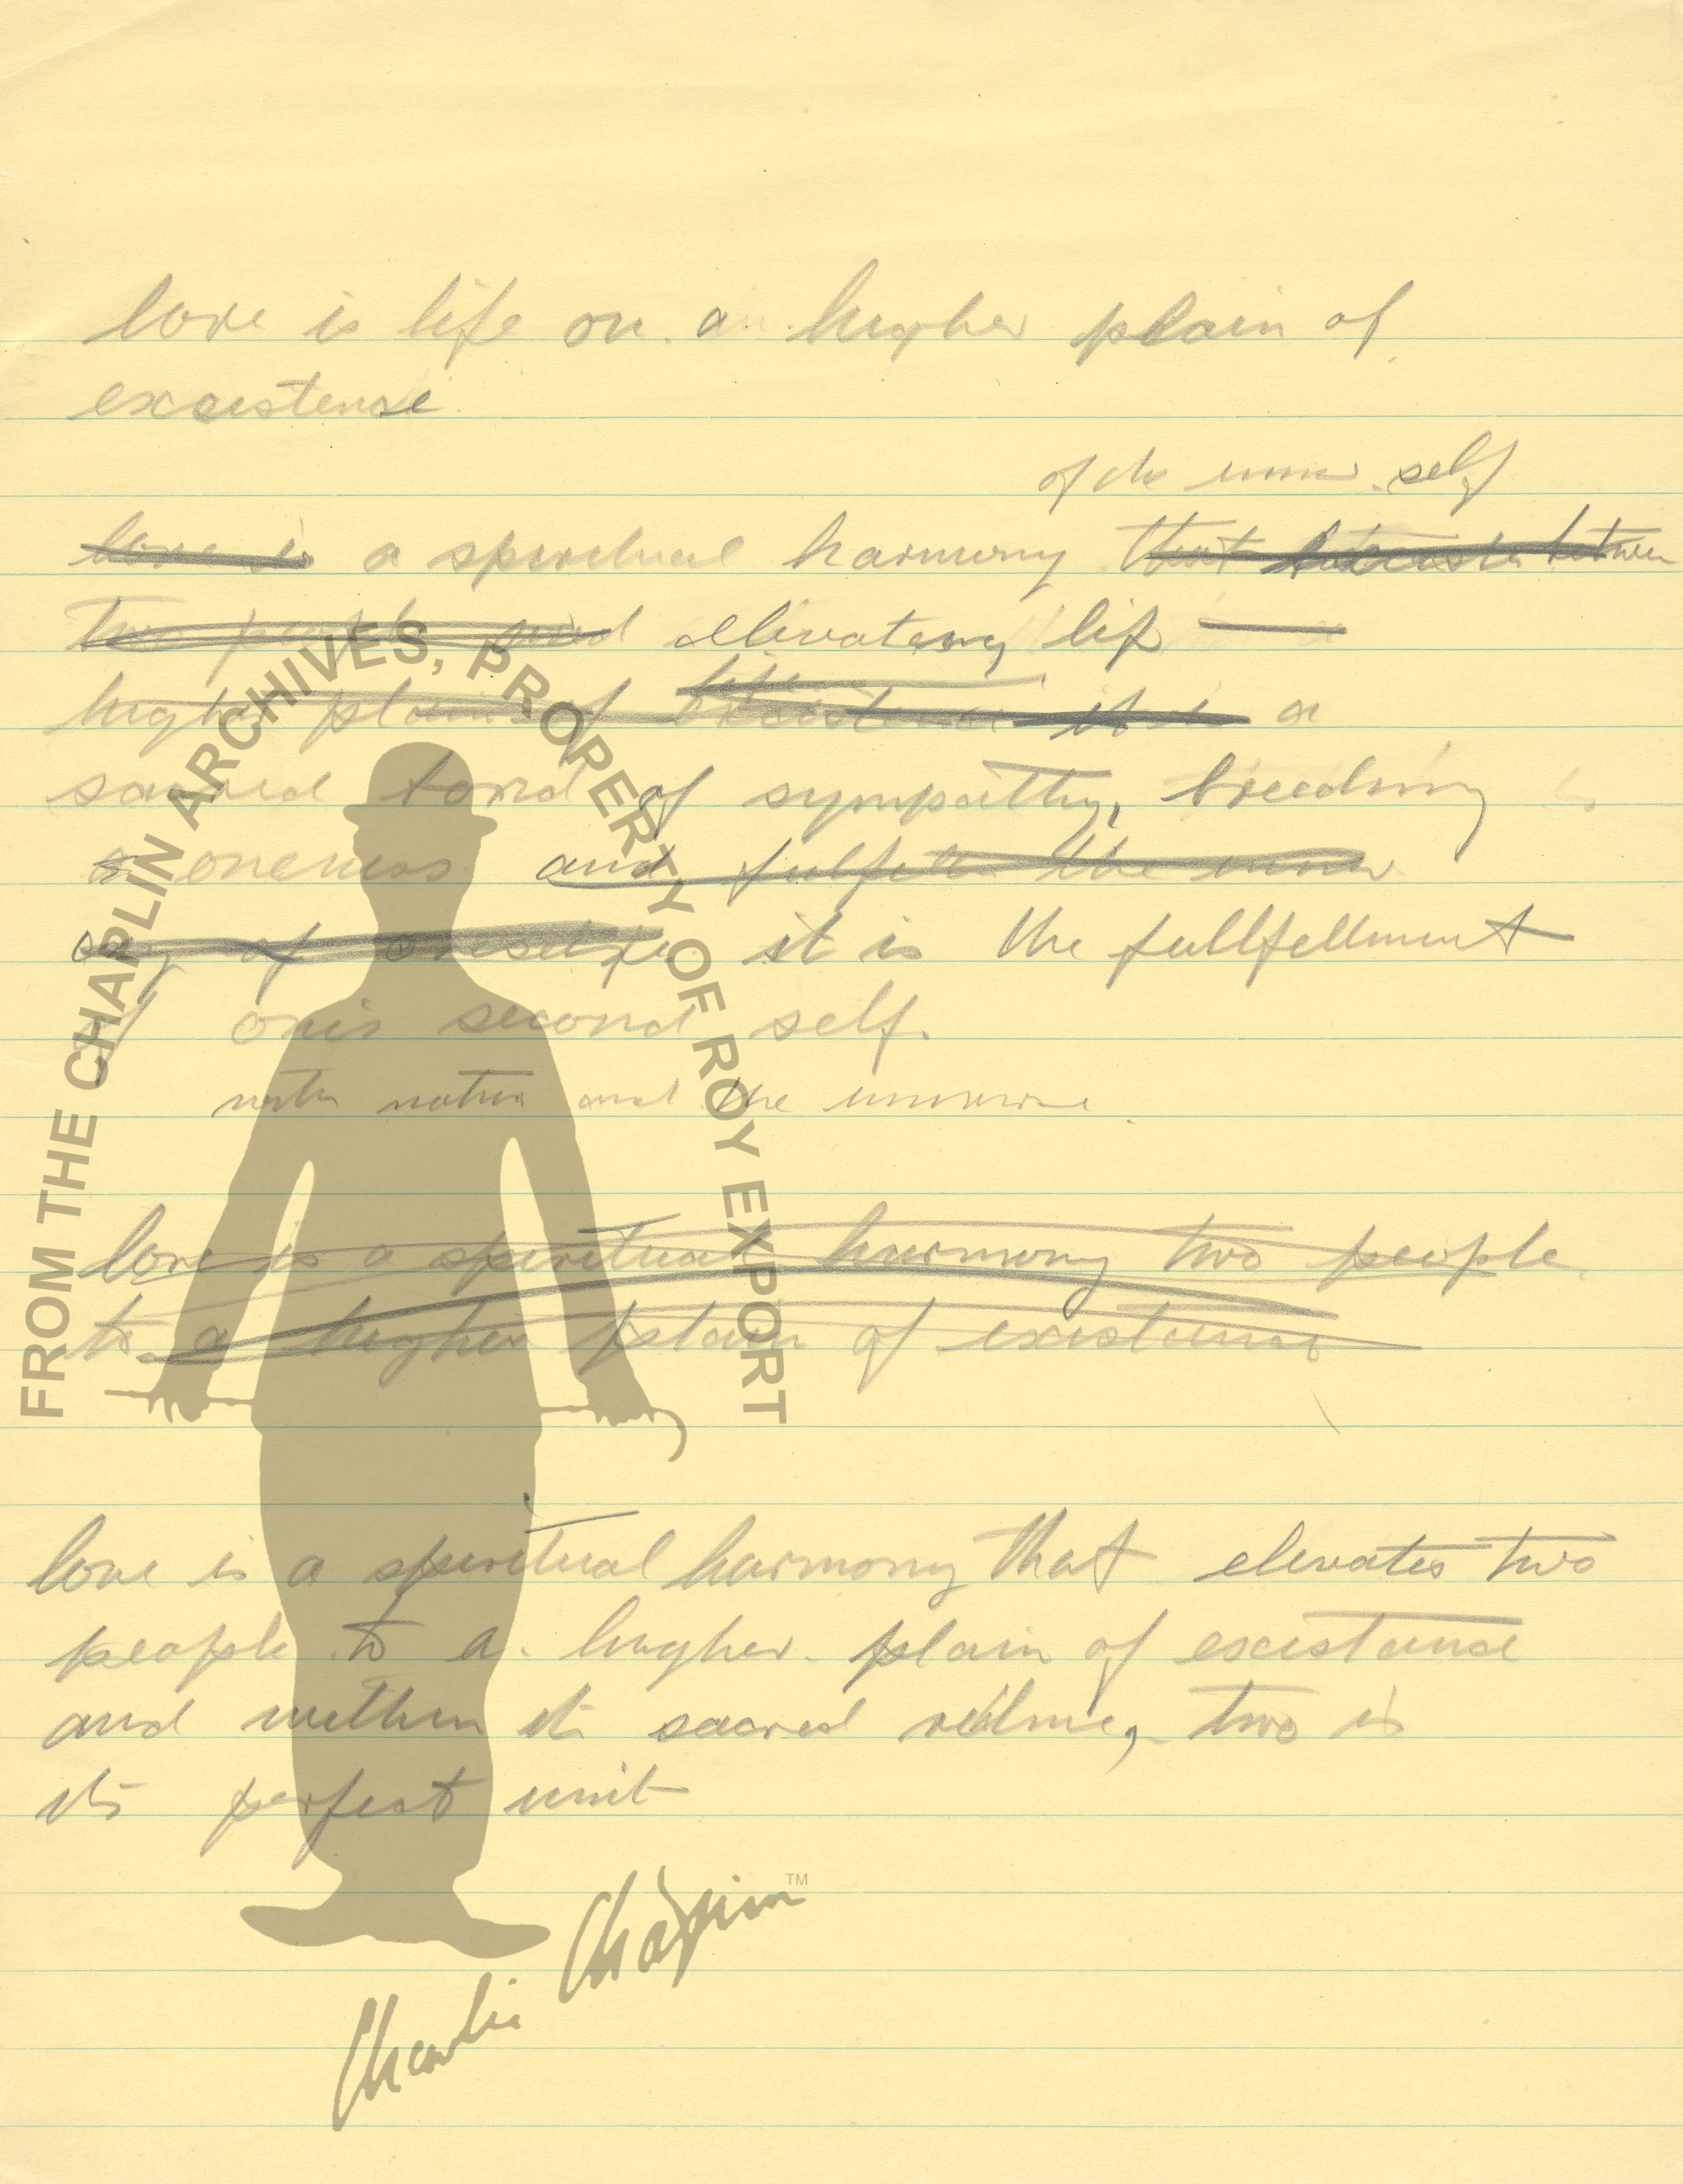 love is life on a higher plain of
excistense
of the inner self
love is a spiritual harmony that between
two people and elivateing life a
higher plain of life existense it is a
sacred bond of sympathy, breeding
a oneness and fulfills the inner
of oneself it is the fullfellment
of one's second self.
with nature and the universe.
love is a spiritual harmony two people
to a higher plain of existense
love is a spiritual harmony that elevates two
people to a higher plain of excistense
and within its sacred two is
its perfect unit
FROM THE CHAPLIN ARCHIVES, PROPERTY OF ROY EXPORT
Charlie Chaplin™